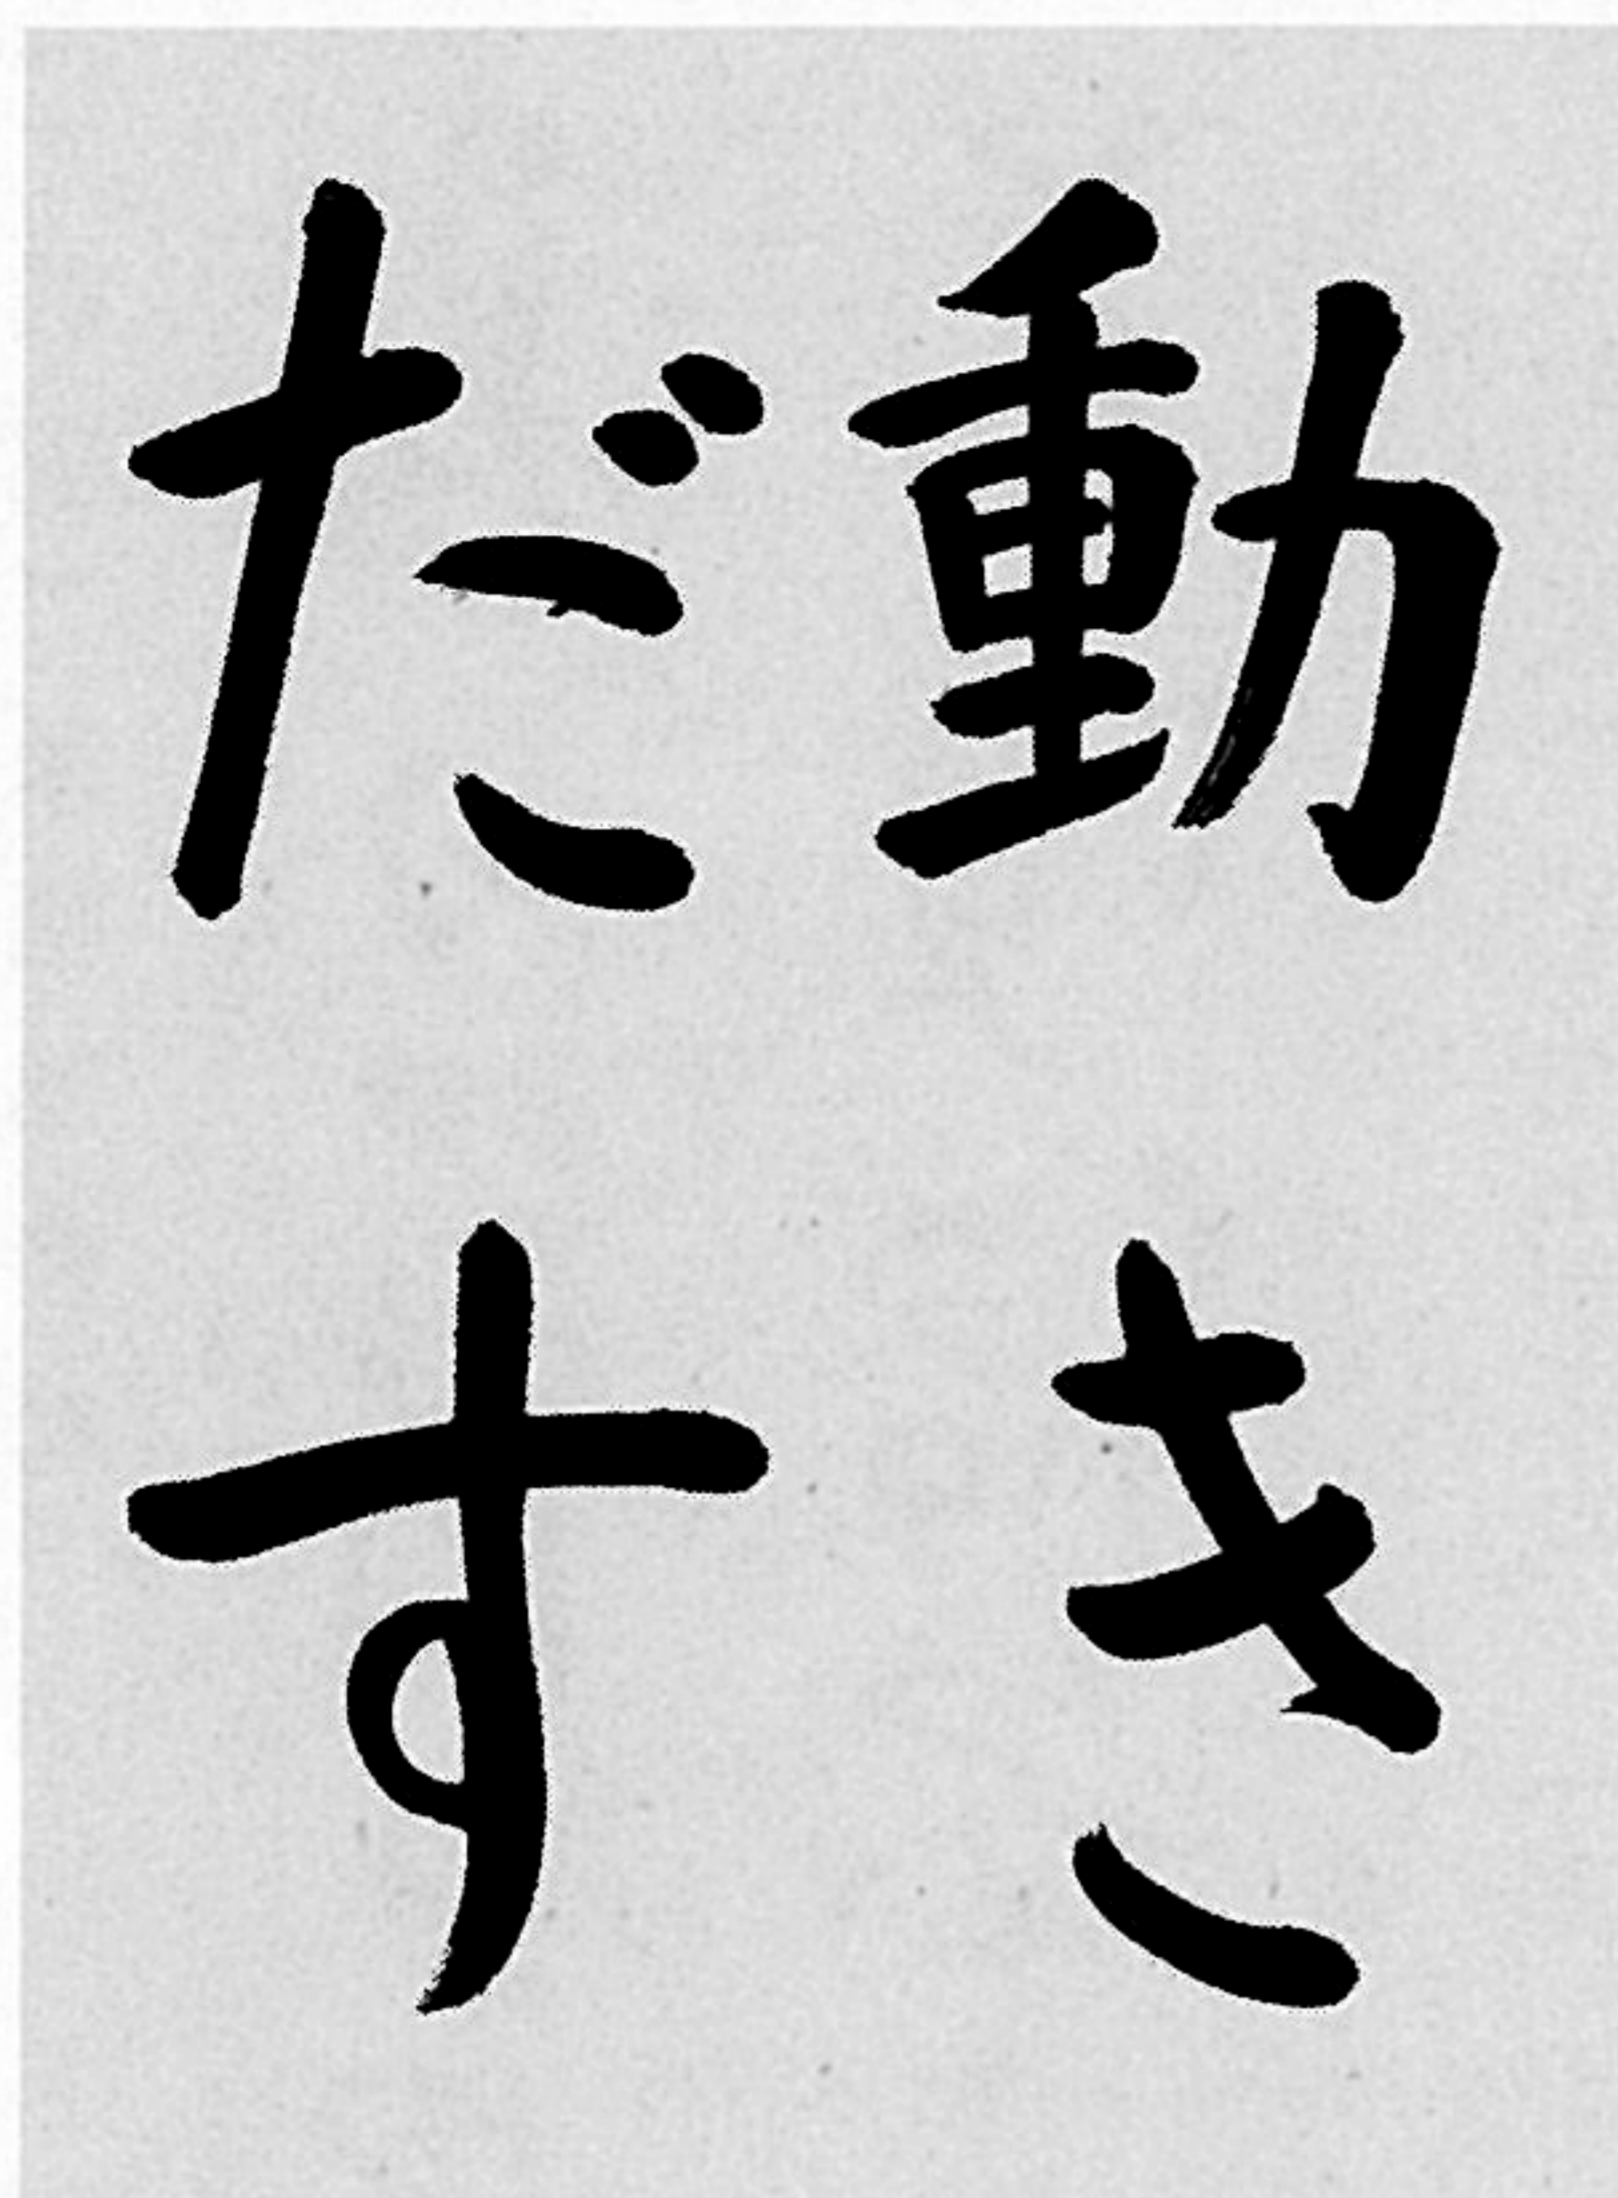 動き
だす